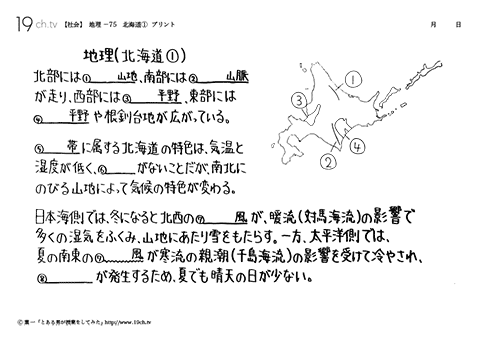 19 ch.tv 【社会】 地理－75 北海道① プリント 月 日
地理(北海道①)
北部には① 山地、南部には② 山脈
が走り、西部には③ 平野、東部には
④ 平野や根釧台地が広がっている。
⑤ 帯に属する北海道の特色は、気温と
湿度が低く、⑥ がないことだが、南北に
のびる山地によって気候の特色が変わる。
日本海側では、冬になると北西の⑦ 風が、暖流(対馬海流)の影響で
多くの湿気をふくみ、山地にあたり雪をもたらす。一方、太平洋側では、
夏の南東の⑦ 風が寒流の親潮(千島海流)の影響を受けて冷やされ、
⑧ が発生するため、夏でも晴天の日が少ない。
①
③
②
④
© 葉一「とある男が授業をしてみた」http://www.19ch.tv